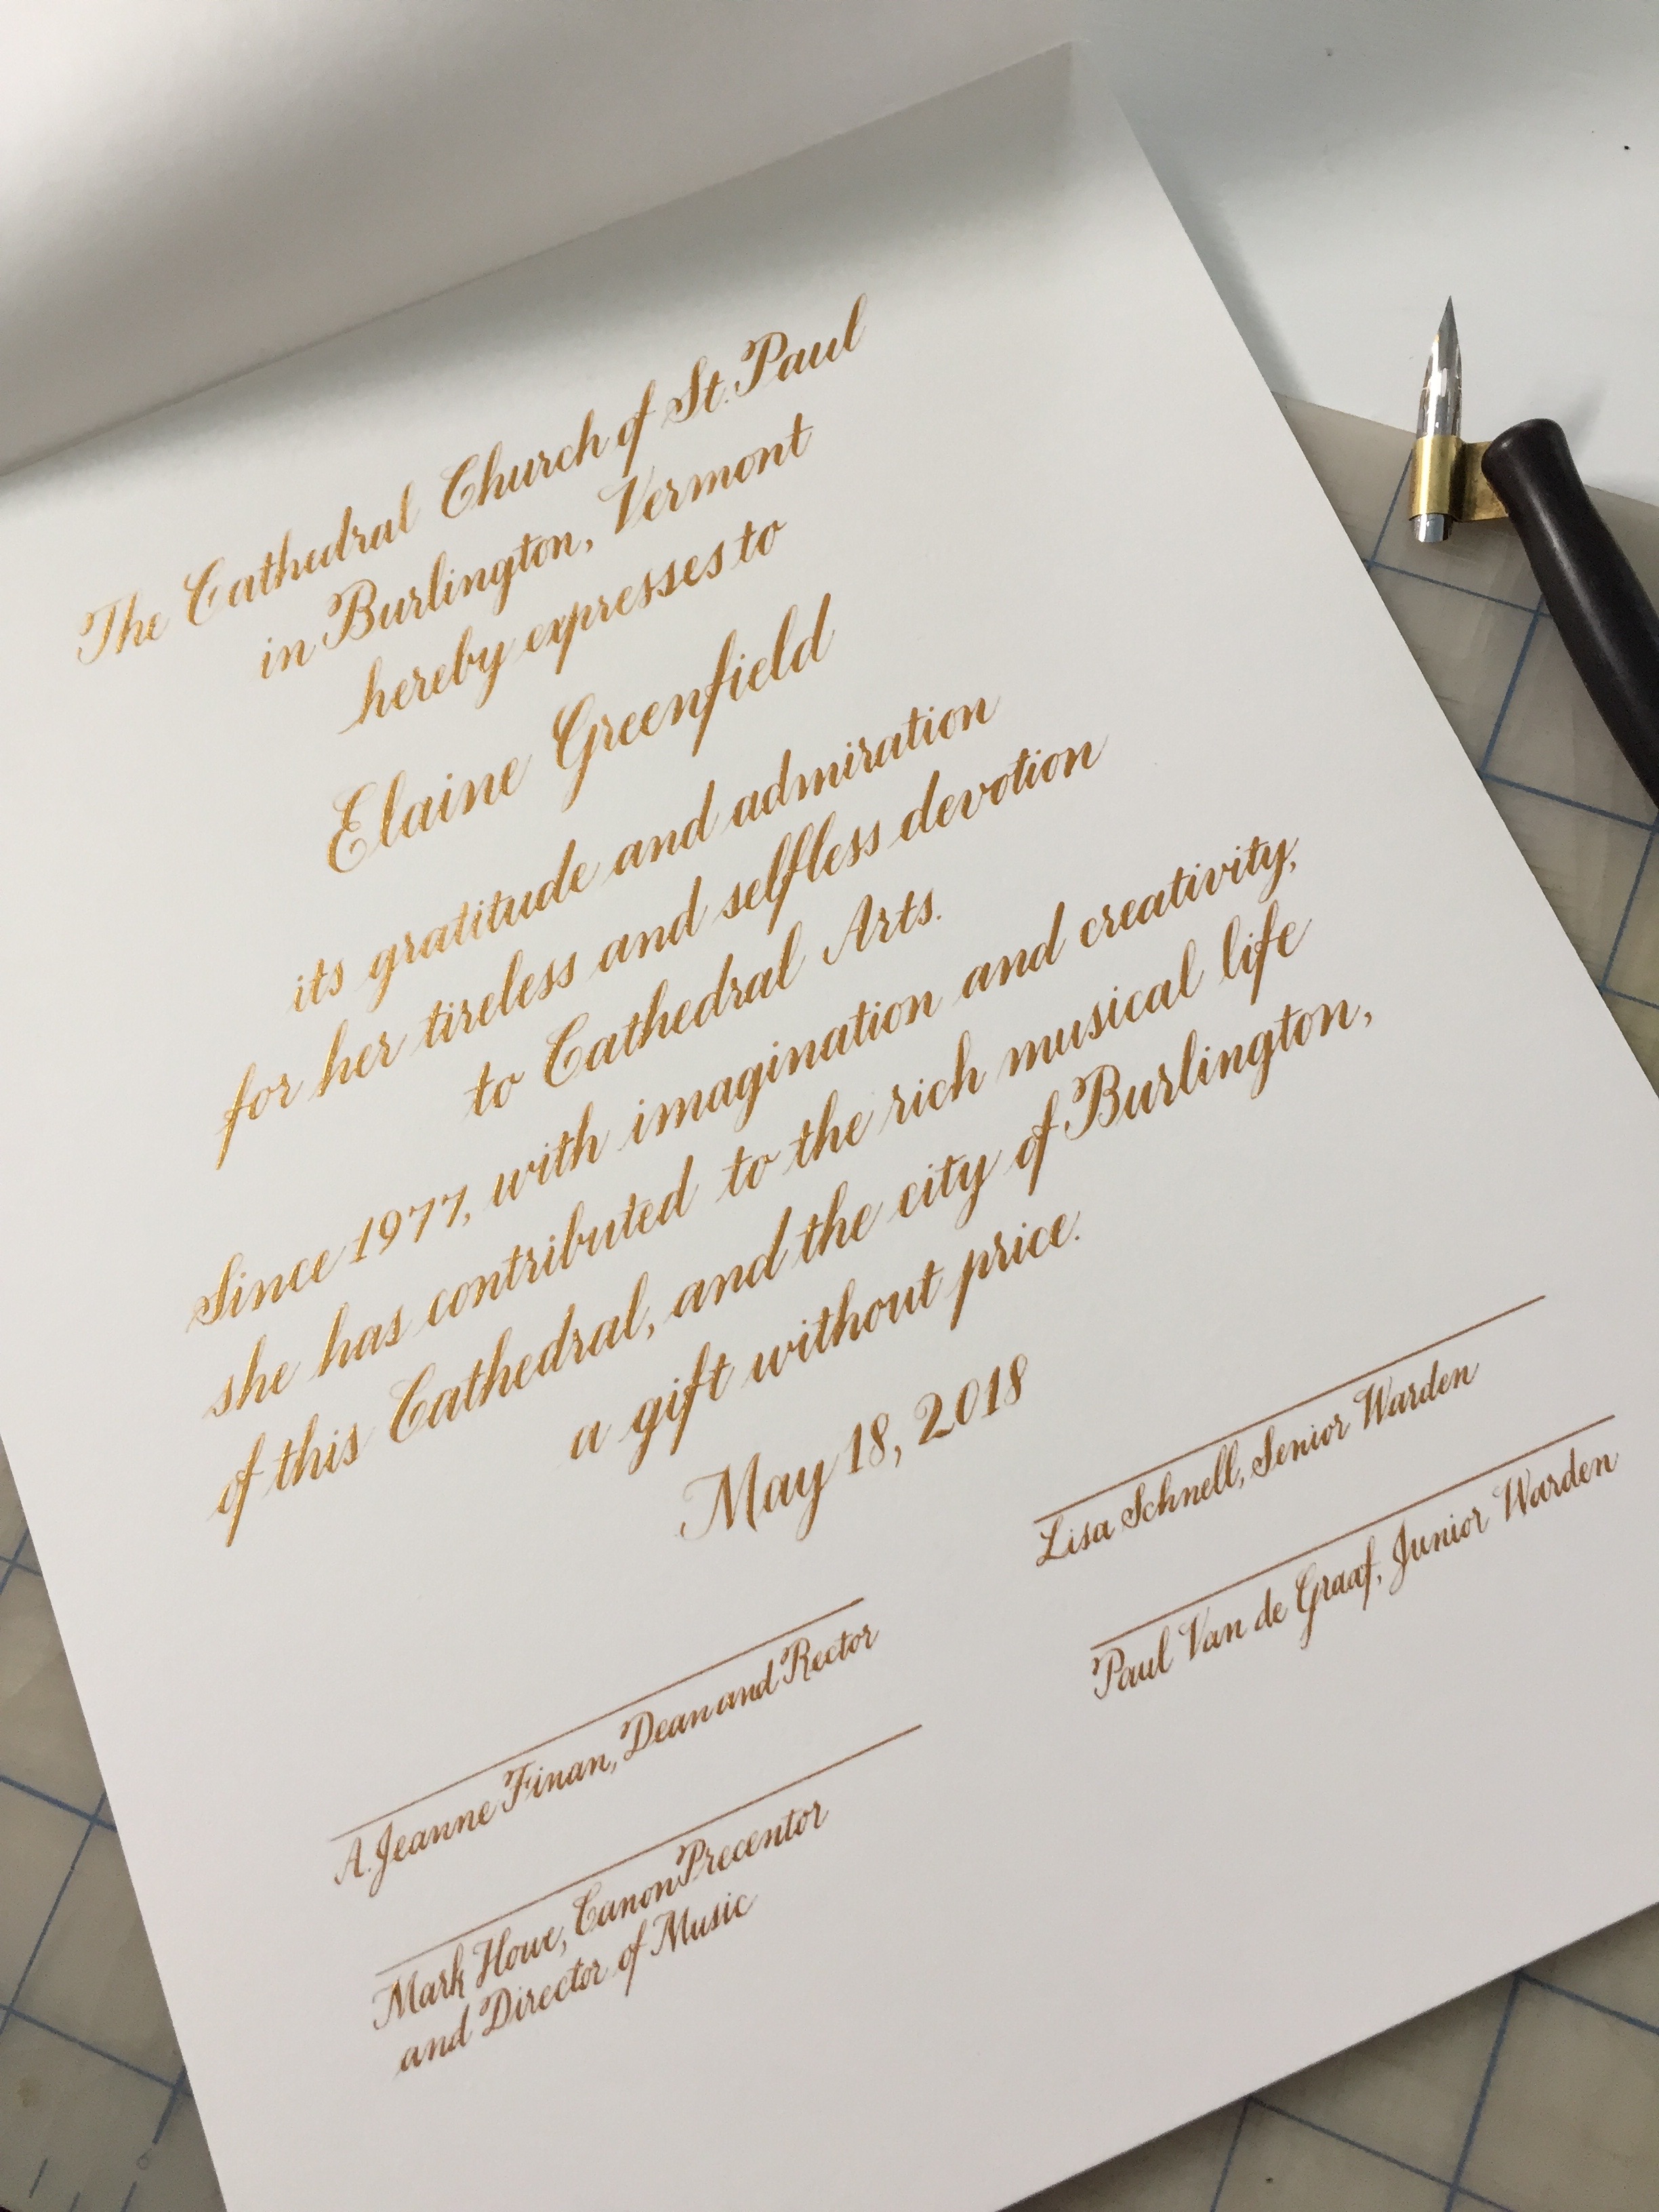 The Cathedral Church of St. Paul
in Burlington, Vermont
hereby expresses to
Elaine Greenfield
its gratitude and admiration
for her tireless and selfless devotion
to Cathedral Arts.
Since 1977, with imagination and creativity,
she has contributed to the rich musical life
of this Cathedral, and the city of Burlington,
a gift without price.
May 18, 2018
A. Jeanne Finan, Dean and Rector
Mark Howe, Canon Precentor
and Director of Music
Lisa Schnell, Senior Warden
Paul Van de Graaf, Junior Warden